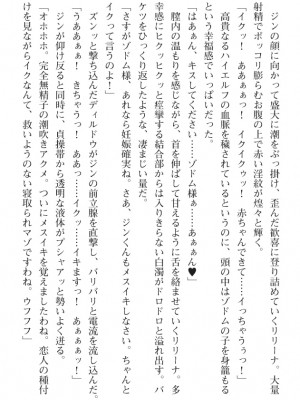 ジンの顔に向かって盛大に潮をぶっ掛け、歪んだ歓喜に登り詰めていくリリーナ。大量
射精でポッコリ膨らむお腹の上で赤い淫紋が煌々と輝く。
「イクッ！　あああっ！　イクイクゥッ！　赤ちゃんできて……イっちゃううっっ！」
　高貴なるハイエルフの血脈を穢されているというのに、頭の中はゾドムの子を身籠もる
という幸福感でいっぱいだった。
「はぁぁん、キスしてください……ゾドム様……あぁぁん♥」
　膣内の温もりを感じながら、首を伸ばして甘えるように舌を絡ませていくリリーナ。多
幸感にヒクッヒクッと痙攣する結合部からは入りきらない白濁がドロドロと溢れ出す。バ
ケツをひっくり返したような、凄まじい量だ。
「さすがゾドム様、あれなら妊娠確実ね。さあ、ジンくんもメスイキしなさい。ちゃんと
イクって言うのよ！」
　ズンッと撃ち込んだディルドウがジンの前立腺を直撃し、バリバリと電流を流し込んだ。
「うああぁっ！　きちゃうっ！　イクッ……イキますっ！」
「うあぁぁーーっ！　イクぅぅっ！」
　ジンが仰け反ると同時に、貞操帯から透明な液体がプシャアッと勢いよく迸る。
「オホホホ。完全無精子の潮吹きアクメ。ついにメスイキを覚えましたわね。恋人の種付
けを見ながらイクなんて、救いようのない寝取られマゾですわね。ウフフフ」